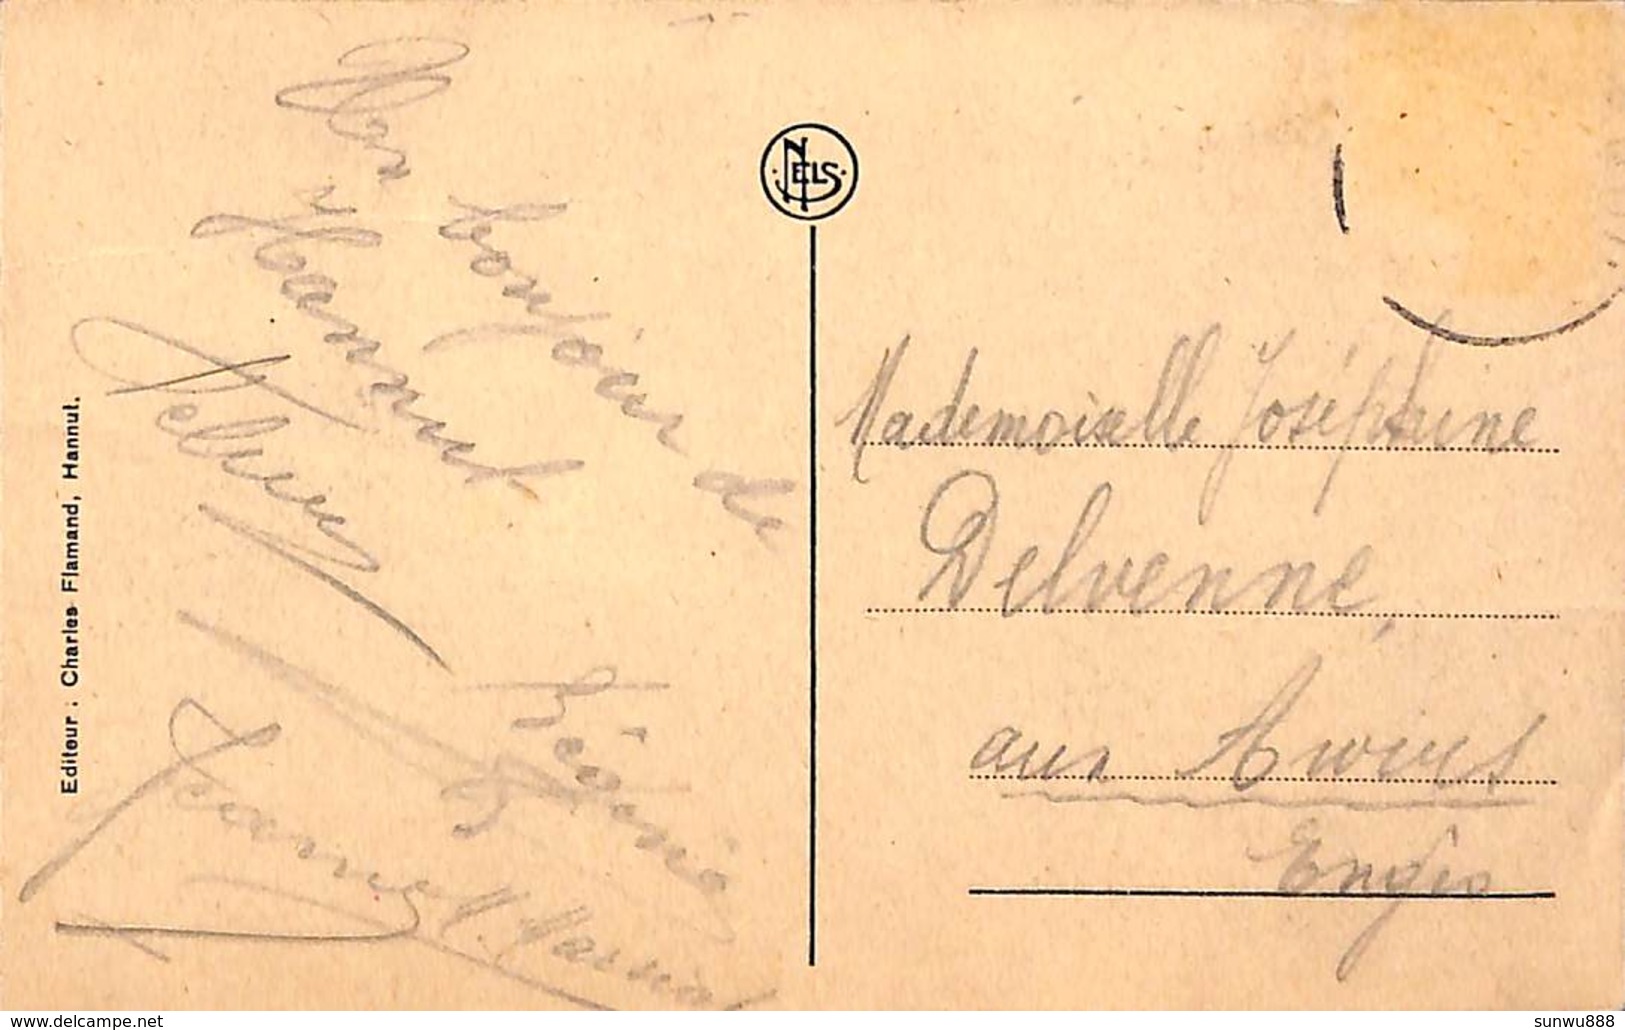 bonjour de
Hannut
Jeanne
NELS
Editeur : Charles Flamand, Hannut.
Mademoiselle Joséphine
Delvenne,
aux Awirs
Engis
www.delcampe.net
sunwu888